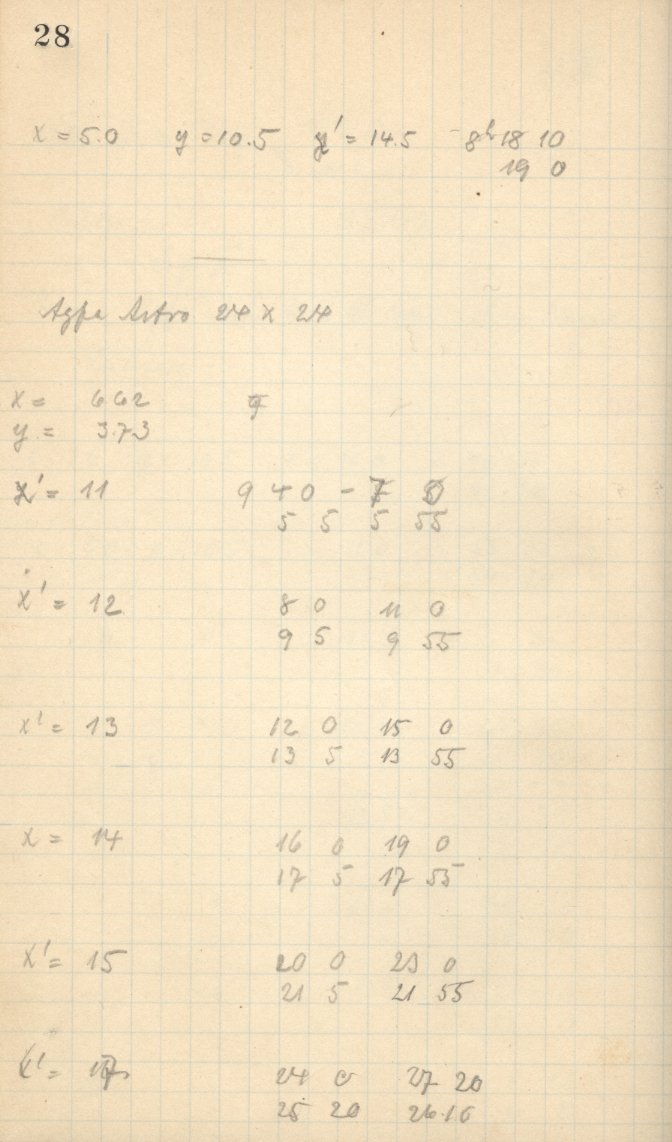 28
x = 5.0 y = 10.5 y' = 14.5 8h 18 10
19 0
Agfa Astro 24 x 24
x = 6.62 9
y = 3.73
x' = 11 9 4 0 - 7 0
5 5 5 55
x' = 12 8 0 11 0
9 5 9 55
x' = 13 12 0 15 0
13 5 13 55
x = 14 16 0 19 0
17 5 17 55
x' = 15 20 0 23 0
21 5 21 55
x' = 24 0 27 20
25 20 26 16